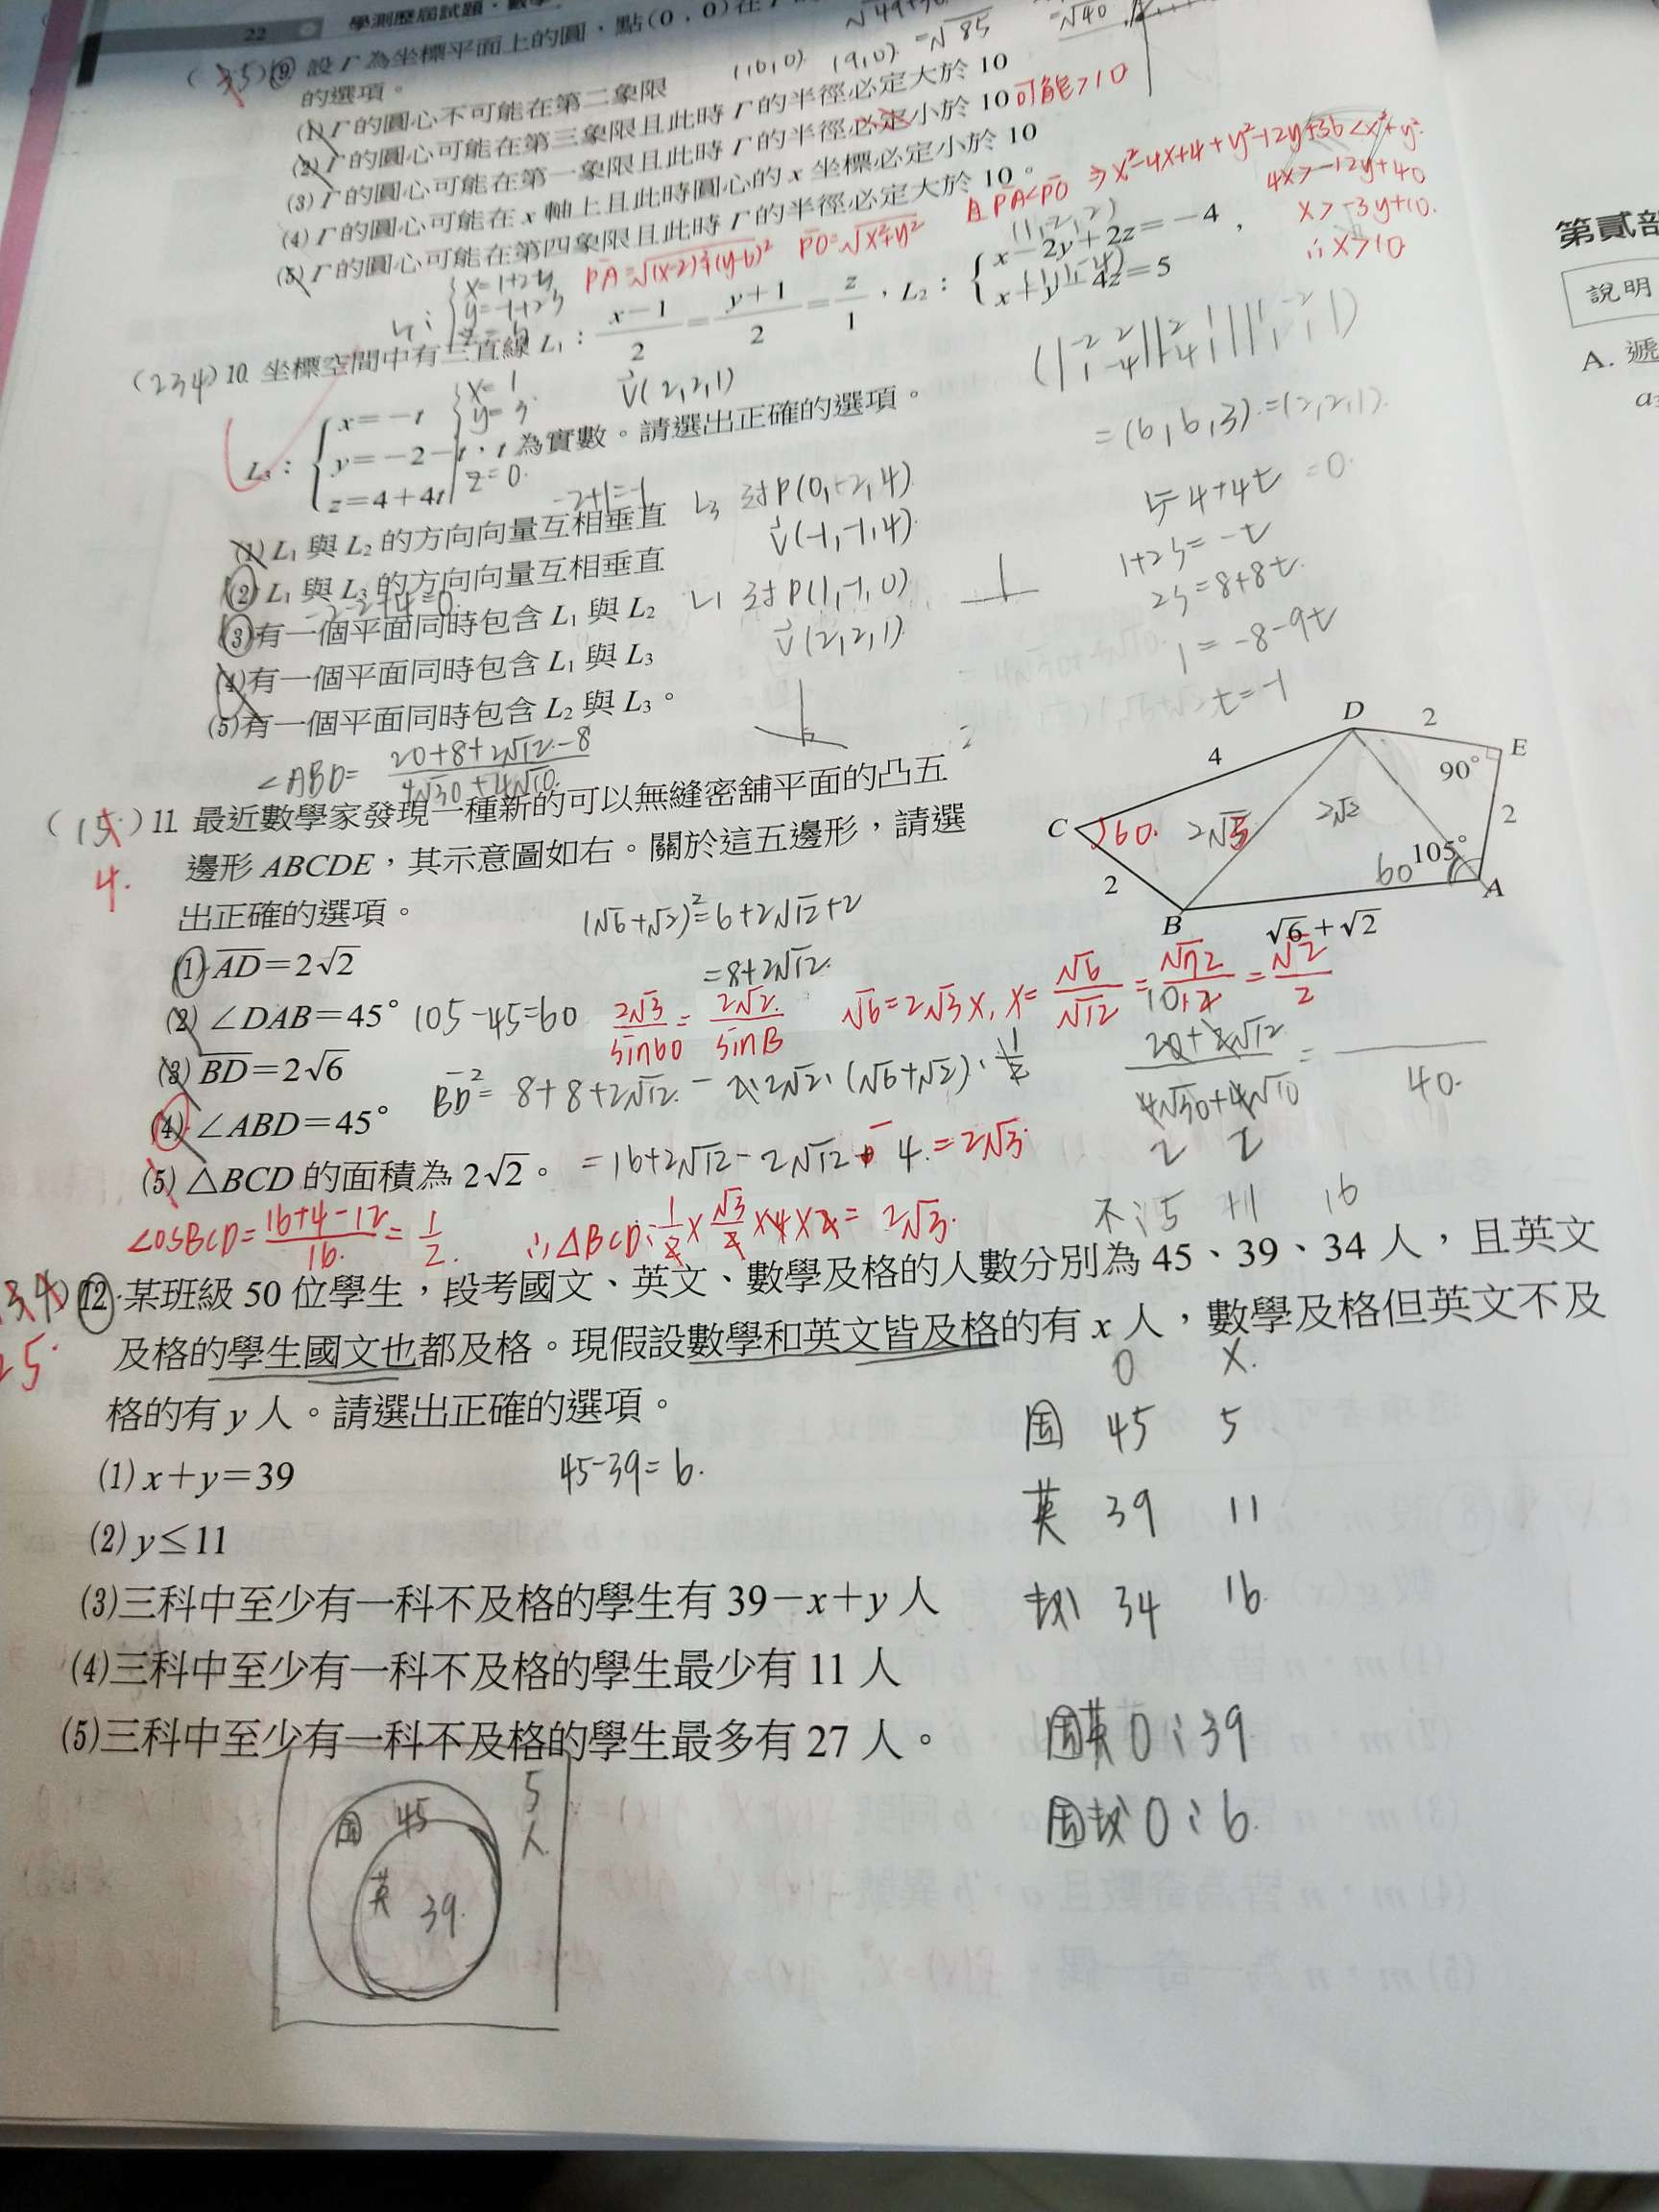 22 學測歷屆試題．數學
(35) 9 設 Γ 為坐標平面上的圓，點(0，0)在
的選項。
(1) Γ 的圓心不可能在第二象限
(2) Γ 的圓心可能在第三象限且此時 Γ 的半徑必定大於 10
(3) Γ 的圓心可能在第一象限且此時 Γ 的半徑必定小於 10 可能>10
(4) Γ 的圓心可能在 x 軸上且此時圓心的 x 坐標必定小於 10
(5) Γ 的圓心可能在第四象限且此時 Γ 的半徑必定大於 10。
(10,0) (9,0) =√85
√40
PA=√(x-2)²+(y-6)² PO=√x²+y² 且PA<PO ⇒x²-4x+4+y²-12y+36<x²+y²
4x>-12y+40
x>-3y+10.
∴x>10
(234) 10. 坐標空間中有三直線 L₁：(x−1)/2=(y+1)/2=z/1，L₂：{x−2y+2z=−4 x+y−4z=5，
L₃：{x=−t y=−2−t，t 為實數。請選出正確的選項。 z=4+4t
x=1
y=3
z=0
v(2,2,1)
=(6,6,3)=(2,2,1).
(1) L₁ 與 L₂ 的方向向量互相垂直
(2) L₁ 與 L₃ 的方向向量互相垂直
-2-2+4=0
(3)有一個平面同時包含 L₁ 與 L₂
(4)有一個平面同時包含 L₁ 與 L₃
(5)有一個平面同時包含 L₂ 與 L₃。
L₃ 過P(0,-2,4)
v(-1,-1,4)
L₁ 過P(1,-1,0)
v(2,2,1)
s=4+4t =0
1+2s=-t
2s=8+8t
1=-8-9t
t=-1
∠ABD= (20+8+2√12-8)/(4√30+4√10)
(15) 11. 最近數學家發現一種新的可以無縫密舖平面的凸五
4.
邊形 ABCDE，其示意圖如右。關於這五邊形，請選
出正確的選項。
(1) AD=2√2
(2) ∠DAB=45° 105-45=60
(3) BD=2√6
(4) ∠ABD=45°
(5) △BCD 的面積為 2√2。
D 2 E
4 90°
C 60. 2√3 2√2 2
2 60 105°
B A
√6+√2
(√6+√2)²=6+2√12+2
=8+2√12.
2√3/sin60=2√2/sinB √6=2√3x, x=√6/√12=√72/12=√2/2
BD²=8+8+2√12-2·2√2·(√6+√2)·1/2
=16+2√12-2√12-4.=2√3.
(20+2√12)/(4√30+4√10)= 40.
cosBCD=(16+4-12)/16=1/2. ∴△BCD:1/2×√3/2×4×2=2√3.
不:5 +11 16
(34) 12. 某班級 50 位學生，段考國文、英文、數學及格的人數分別為 45、39、34 人，且英文
25.
及格的學生國文也都及格。現假設數學和英文皆及格的有 x 人，數學及格但英文不及
格的有 y 人。請選出正確的選項。
(1) x+y=39
45-39=6.
(2) y≤11
(3)三科中至少有一科不及格的學生有 39−x+y 人
(4)三科中至少有一科不及格的學生最少有 11 人
(5)三科中至少有一科不及格的學生最多有 27 人。
O X.
國 45 5
英 39 11
數 34 16
國英O:39
國數O:6.
國 45 5人
英 39.
第貳部
說明
A. 遞